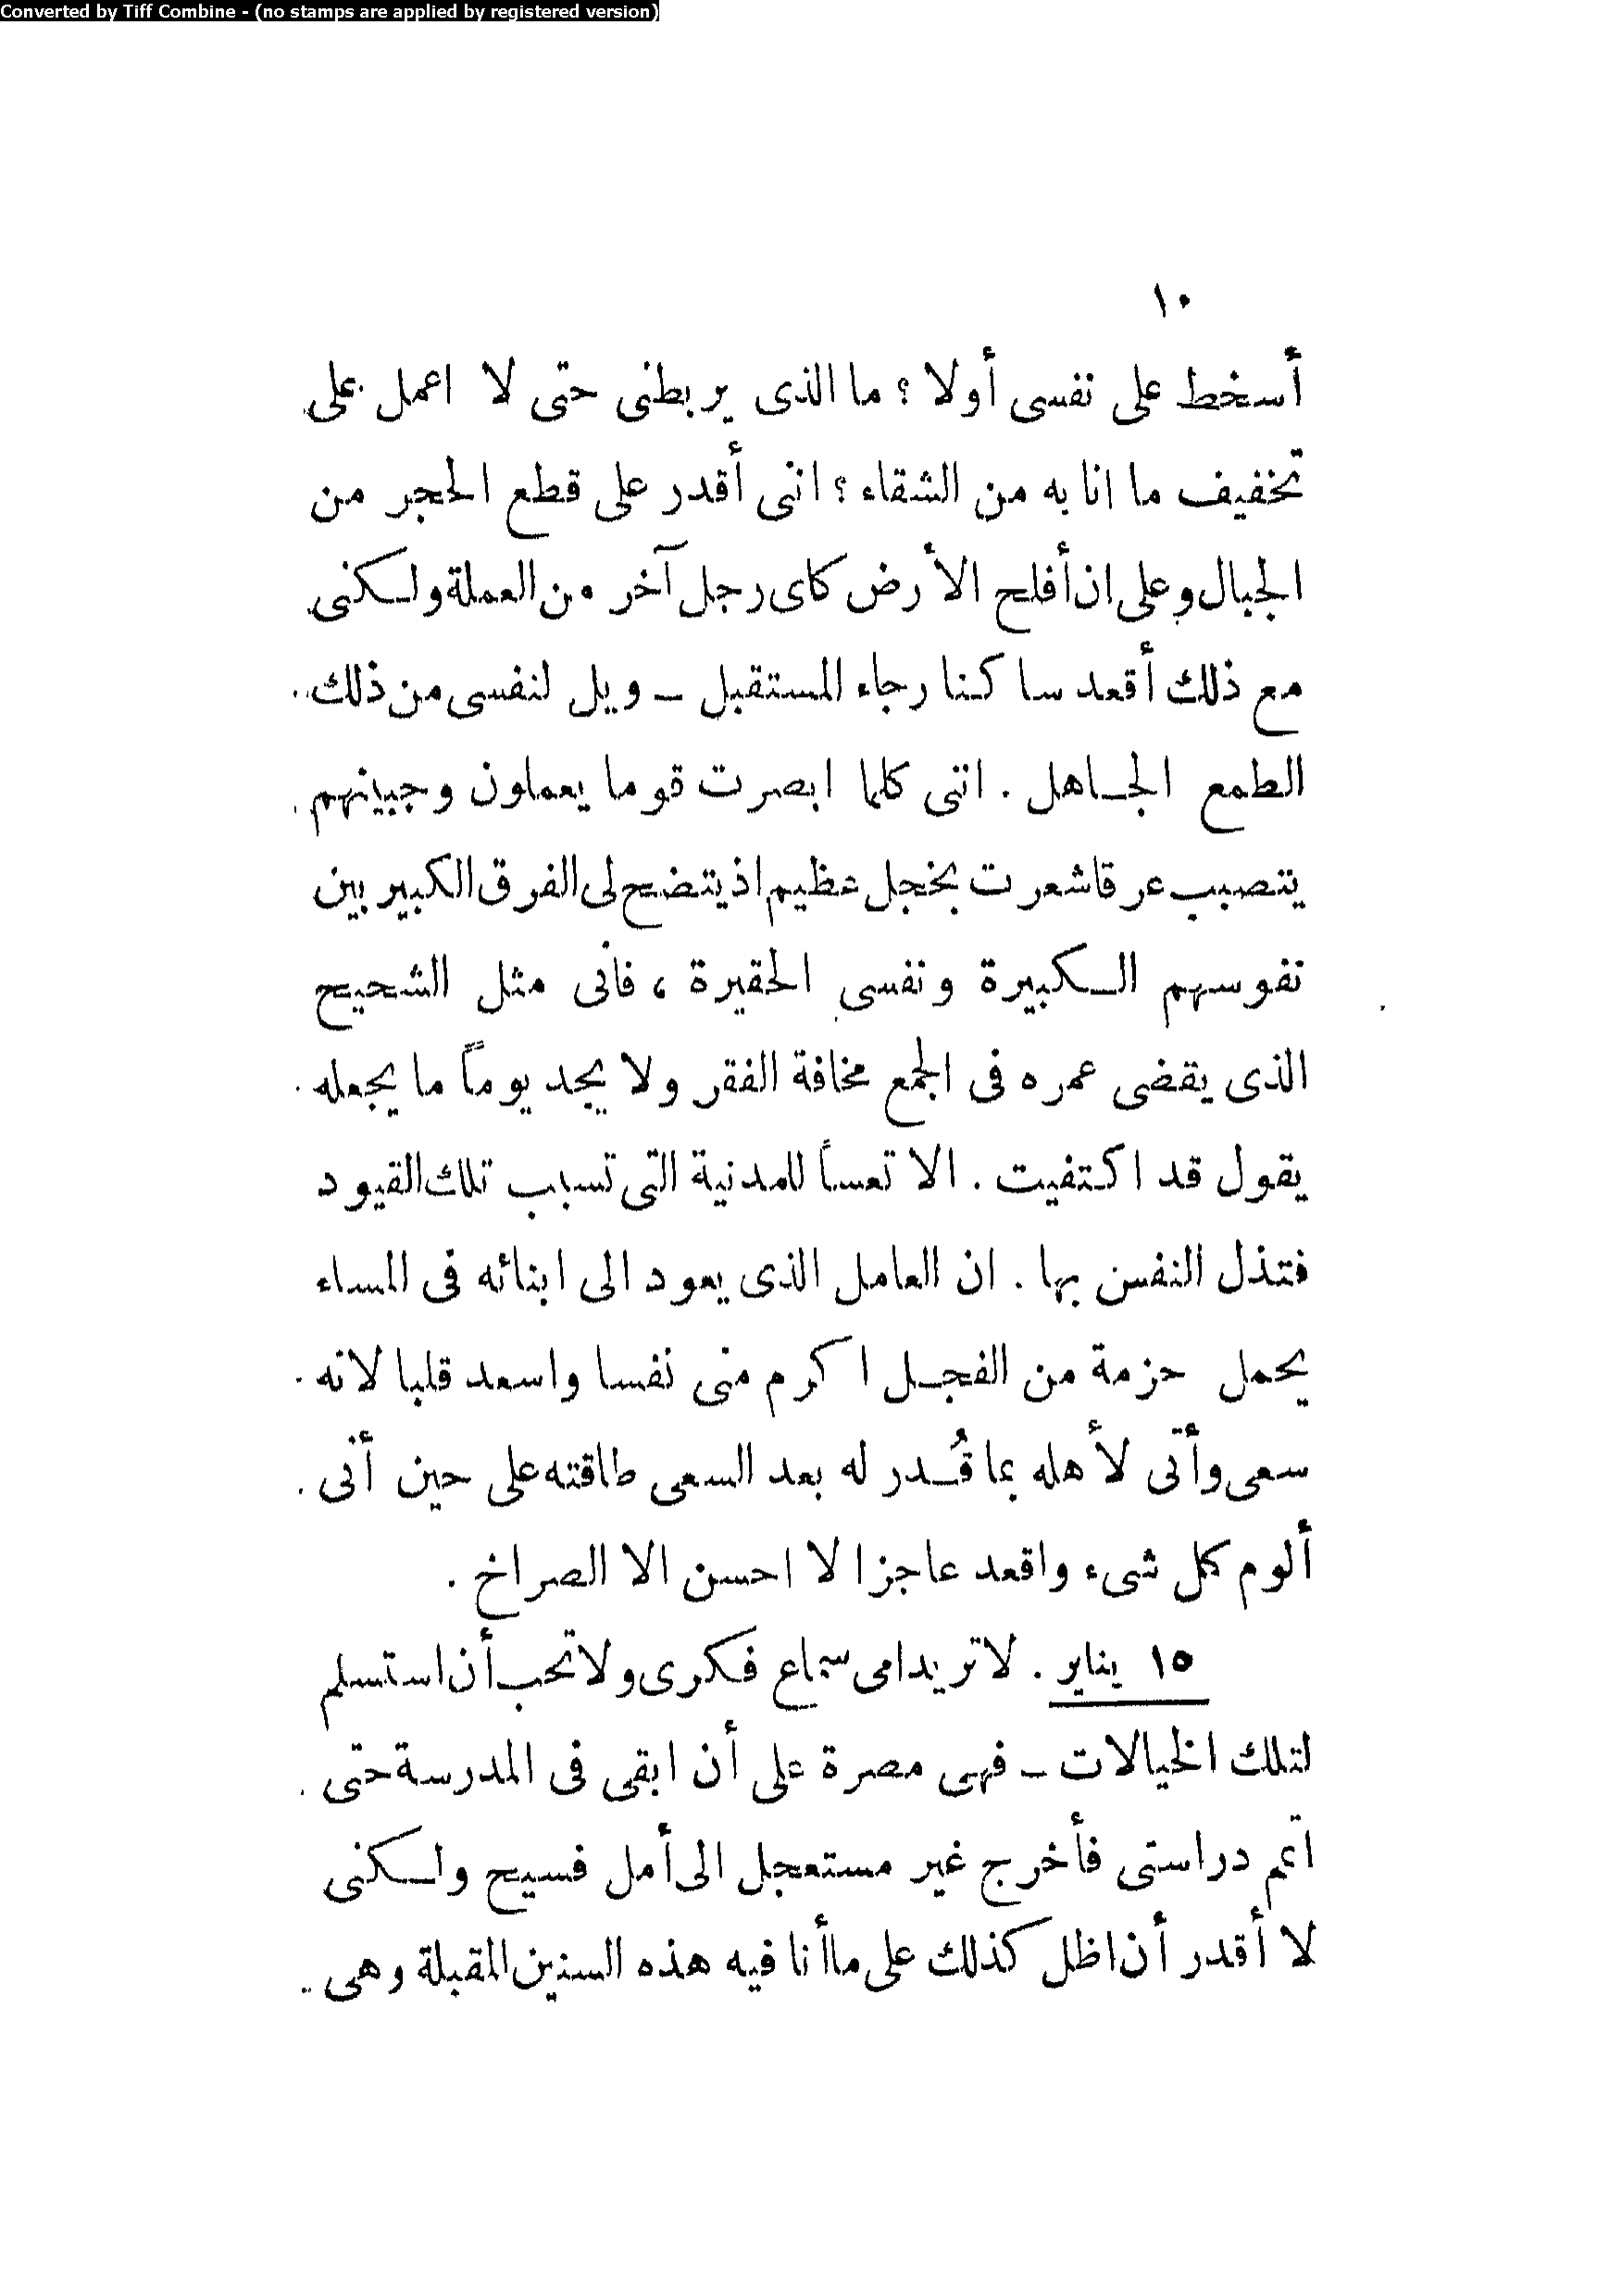 Converted by Tiff Combine - (no stamps are applied by registered version)
١٠
أسخط على نفسى أولا ؟ ما الذى يربطنى حتى لا اعمل على
تخفيف ما انا به من الشقاء ؟ اننى أقدر على قطع الحجر من
الجبال وعلى ان أفلح الأرض كاى رجل آخر من العملة ولكنى
مع ذلك أقعد ساكنا رجاء المستقبل – ويل لنفسى من ذلك
الطمع الجاهل . اننى كلما ابصرت قوما يعملون وجبينهم
يتصبب عرقا شعرت بخجل عظيم اذ يتضح لى الفرق الكبير بين
نفوسهم الكبيرة ونفسى الحقيرة ، فأنى مثل الشحيح
الذى يقضى عمره فى الجمع مخافة الفقر ولا يجد يوماً ما يجعله
يقول قد اكتفيت . الا تعساً للمدنية التى تسبب تلك القيود
فتذل النفس بها . ان العامل الذى يعود الى ابنائه فى المساء
يحمل حزمة من الفجل اكرم منى نفسا واسعد قلبا لانه
سعى وأتى لأهله بما قُدر له بعد السعى طاقته على حين أنى
ألوم كل شىء واقعد عاجزا لا احسن الا الصراخ .
١٥ يناير . لا تريد امى سماع فكرى ولا تحب أن استسلم
لتلك الخيالات – فهى مصرة على أن ابقى فى المدرسة حتى
اتمم دراستى فأخرج غير مستعجل الى أمل فسيح ولكنى
لا أقدر أن اظل كذلك على ما أنا فيه هذه السنين المقبلة وهى